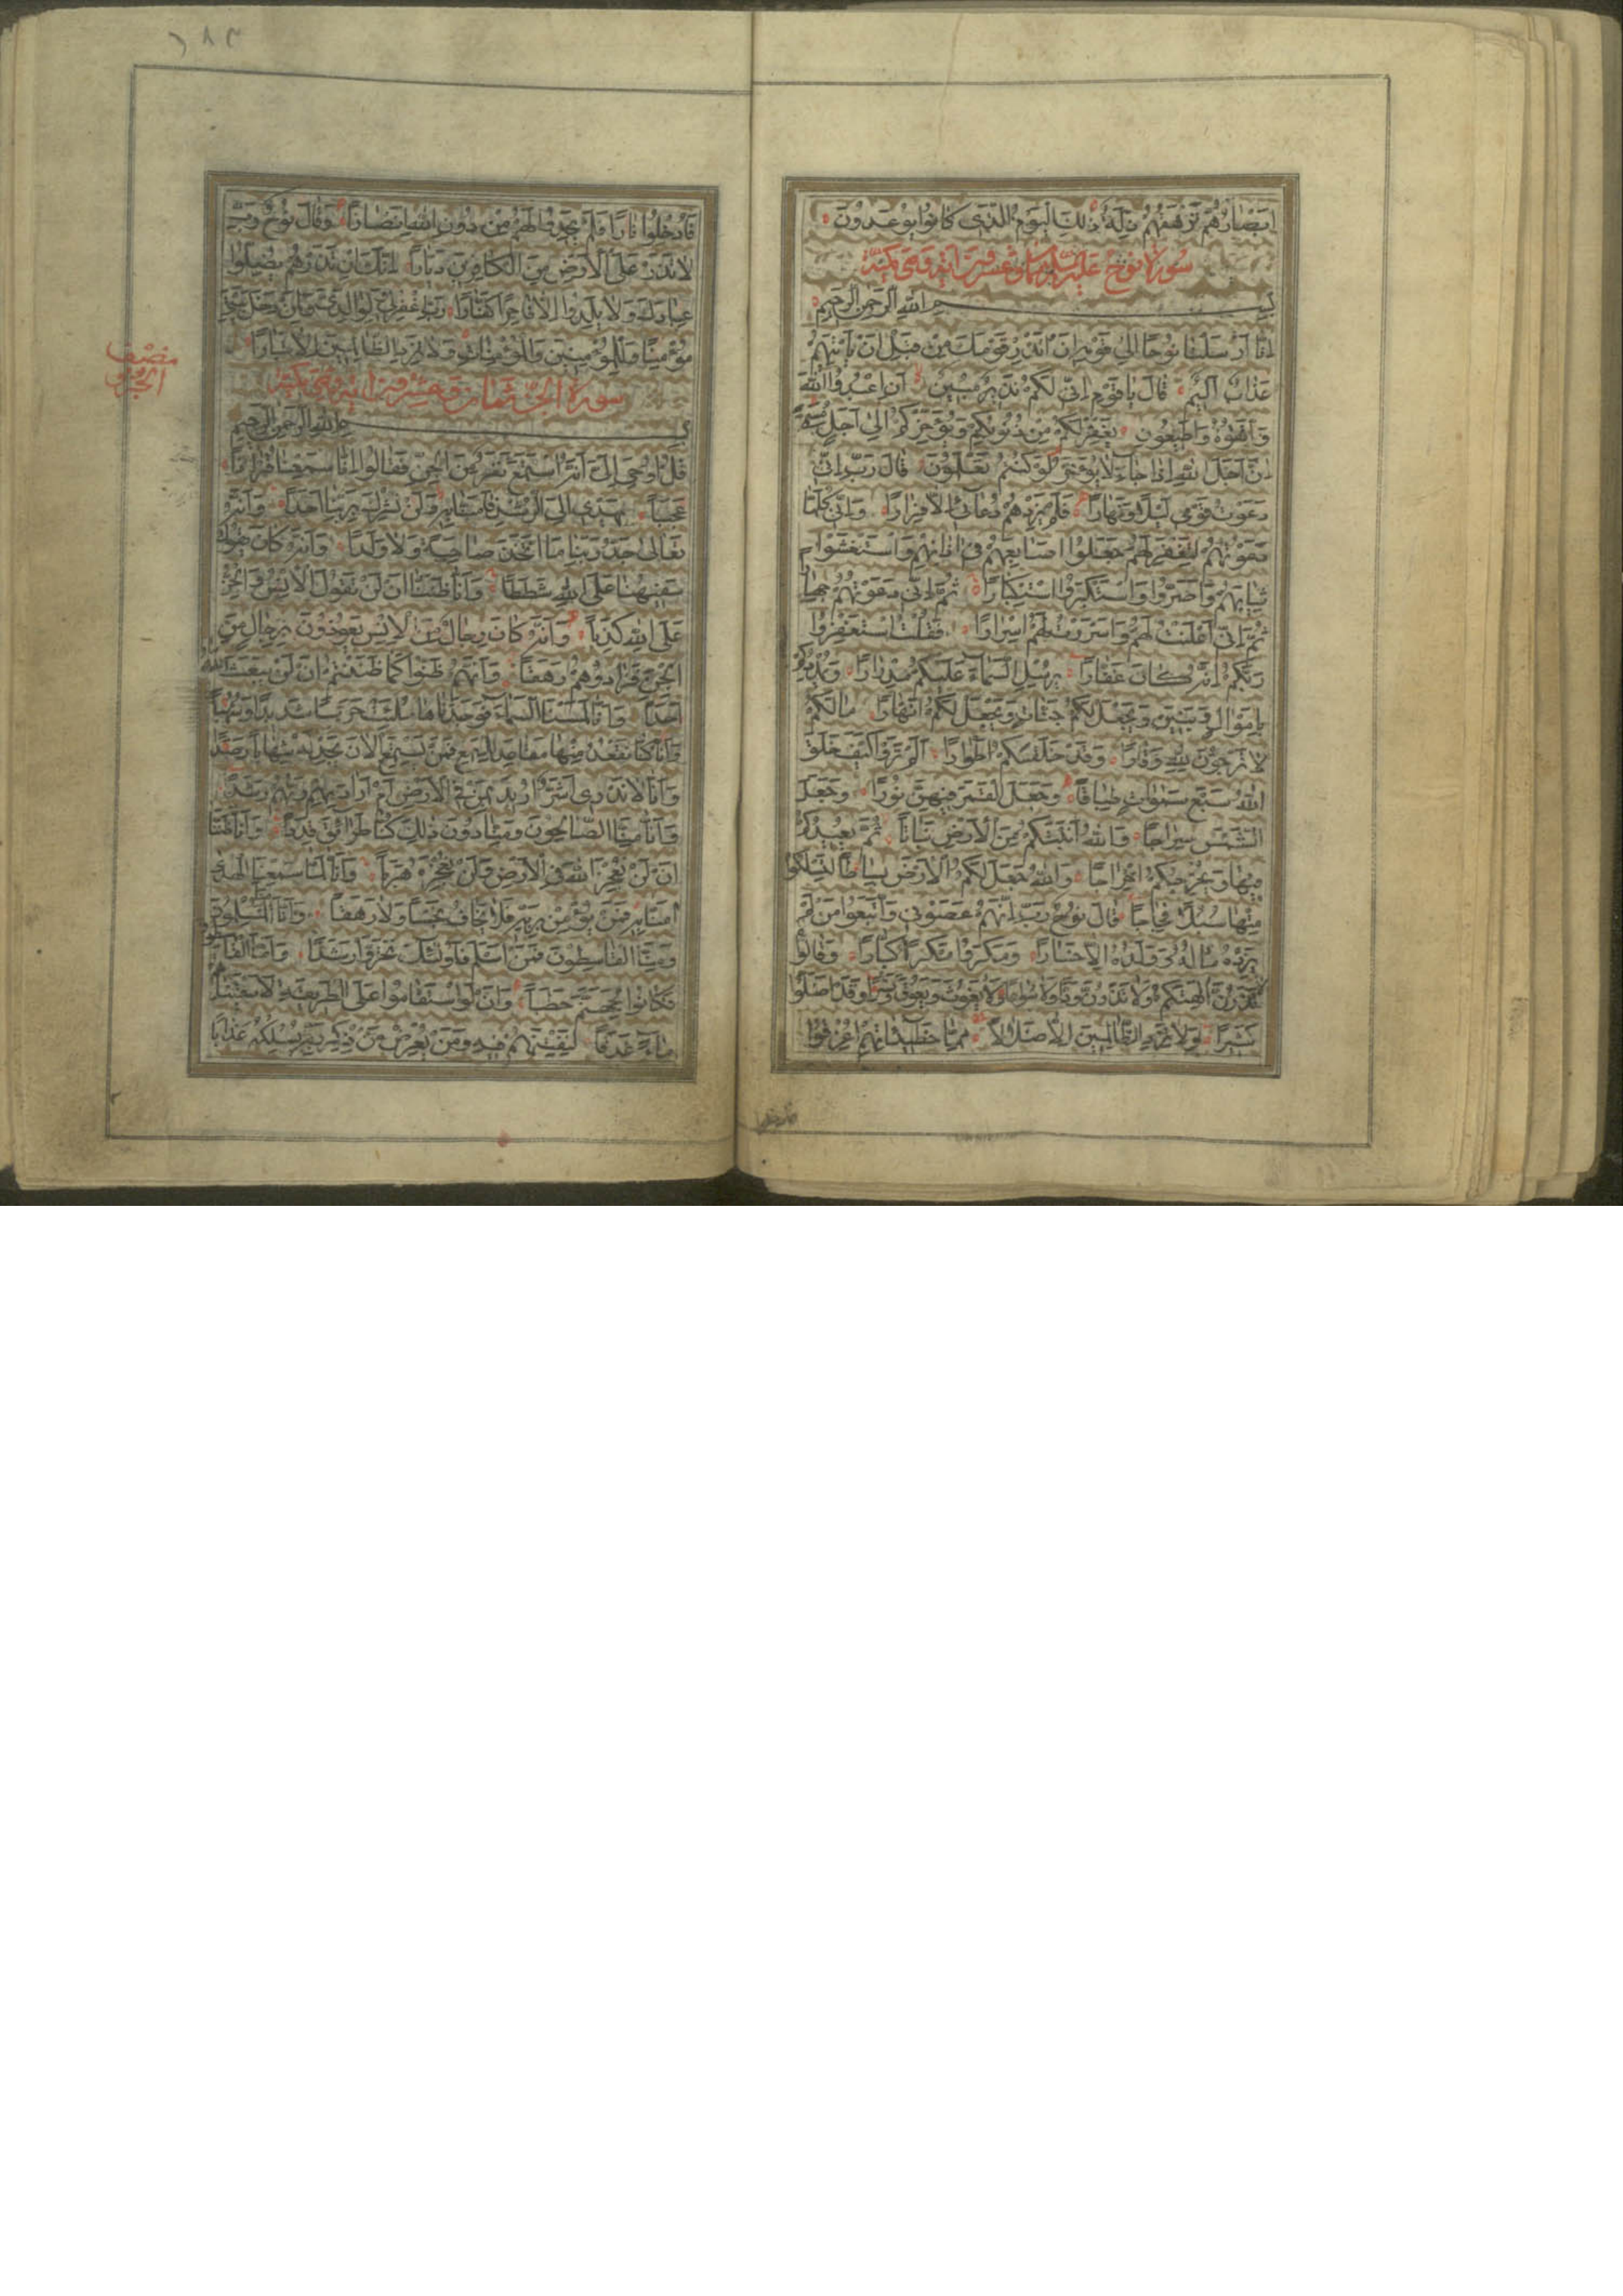 ابصارهم ترهقهم ذلة ذلك اليوم الذي كانوا يوعدون
سورة نوح عليه السلام ثمان وعشرون اية وهي مكية
بسم الله الرحمن الرحيم
انا ارسلنا نوحا الى قومه ان انذر قومك من قبل ان ياتيهم
عذاب اليم قال يا قوم اني لكم نذير مبين ان اعبدوا الله
واتقوه واطيعون يغفر لكم من ذنوبكم ويؤخركم الى اجل مسمى
ان اجل الله اذا جاء لا يؤخر لو كنتم تعلمون قال رب اني
دعوت قومي ليلا ونهارا فلم يزدهم دعائي الا فرارا واني كلما
دعوتهم لتغفر لهم جعلوا اصابعهم في اذانهم واستغشوا
ثيابهم واصروا واستكبروا استكبارا ثم اني دعوتهم جهارا
ثم اني اعلنت لهم واسررت لهم اسرارا فقلت استغفروا
ربكم انه كان غفارا يرسل السماء عليكم مدرارا ويمددكم
باموال وبنين ويجعل لكم جنات ويجعل لكم انهارا ما لكم
لا ترجون لله وقارا وقد خلقكم اطوارا الم تروا كيف خلق
الله سبع سموات طباقا وجعل القمر فيهن نورا وجعل
الشمس سراجا والله انبتكم من الارض نباتا ثم يعيدكم
فيها ويخرجكم اخراجا والله جعل لكم الارض بساطا لتسلكوا
منها سبلا فجاجا قال نوح رب انهم عصوني واتبعوا من لم
يزده ماله وولده الا خسارا ومكروا مكرا كبارا وقالوا
لا تذرن الهتكم ولا تذرن ودا ولا سواعا ولا يغوث ويعوق ونسرا وقد اضلوا
كثيرا ولا تزد الظالمين الا ضلالا مما خطيئاتهم اغرقوا
فادخلوا
٦٨٣
فادخلوا نارا فلم يجدوا لهم من دون الله انصارا وقال نوح رب
لا تذر على الارض من الكافرين ديارا انك ان تذرهم يضلوا
عبادك ولا يلدوا الا فاجرا كفارا رب اغفر لي ولوالدي ولمن دخل بيتي
مؤمنا وللمؤمنين والمؤمنات ولا تزد الظالمين الا تبارا
نصف
الجزو
سورة الجن ثمان وعشرون اية وهي مكية
بسم الله الرحمن الرحيم
قل اوحي الي انه استمع نفر من الجن فقالوا انا سمعنا قرانا
عجبا يهدي الى الرشد فامنا به ولن نشرك بربنا احدا وانه
تعالى جد ربنا ما اتخذ صاحبة ولا ولدا وانه كان يقول
سفيهنا على الله شططا وانا ظننا ان لن تقول الانس والجن
على الله كذبا وانه كان رجال من الانس يعوذون برجال من
الجن فزادوهم رهقا وانهم ظنوا كما ظننتم ان لن يبعث الله
احدا وانا لمسنا السماء فوجدناها ملئت حرسا شديدا وشهبا
وانا كنا نقعد منها مقاعد للسمع فمن يستمع الان يجد له شهابا رصدا
وانا لا ندري اشر اريد بمن في الارض ام اراد بهم ربهم رشدا
وانا منا الصالحون ومنا دون ذلك كنا طرائق قددا وانا ظننا
ان لن نعجز الله في الارض ولن نعجزه هربا وانا لما سمعنا الهدى
امنا به فمن يؤمن بربه فلا يخاف بخسا ولا رهقا وانا منا المسلمون
ومنا القاسطون فمن اسلم فاولئك تحروا رشدا واما القاسطون
فكانوا لجهنم حطبا وان لو استقاموا على الطريقة لاسقيناهم
ماء غدقا لنفتنهم فيه ومن يعرض عن ذكر ربه يسلكه عذابا